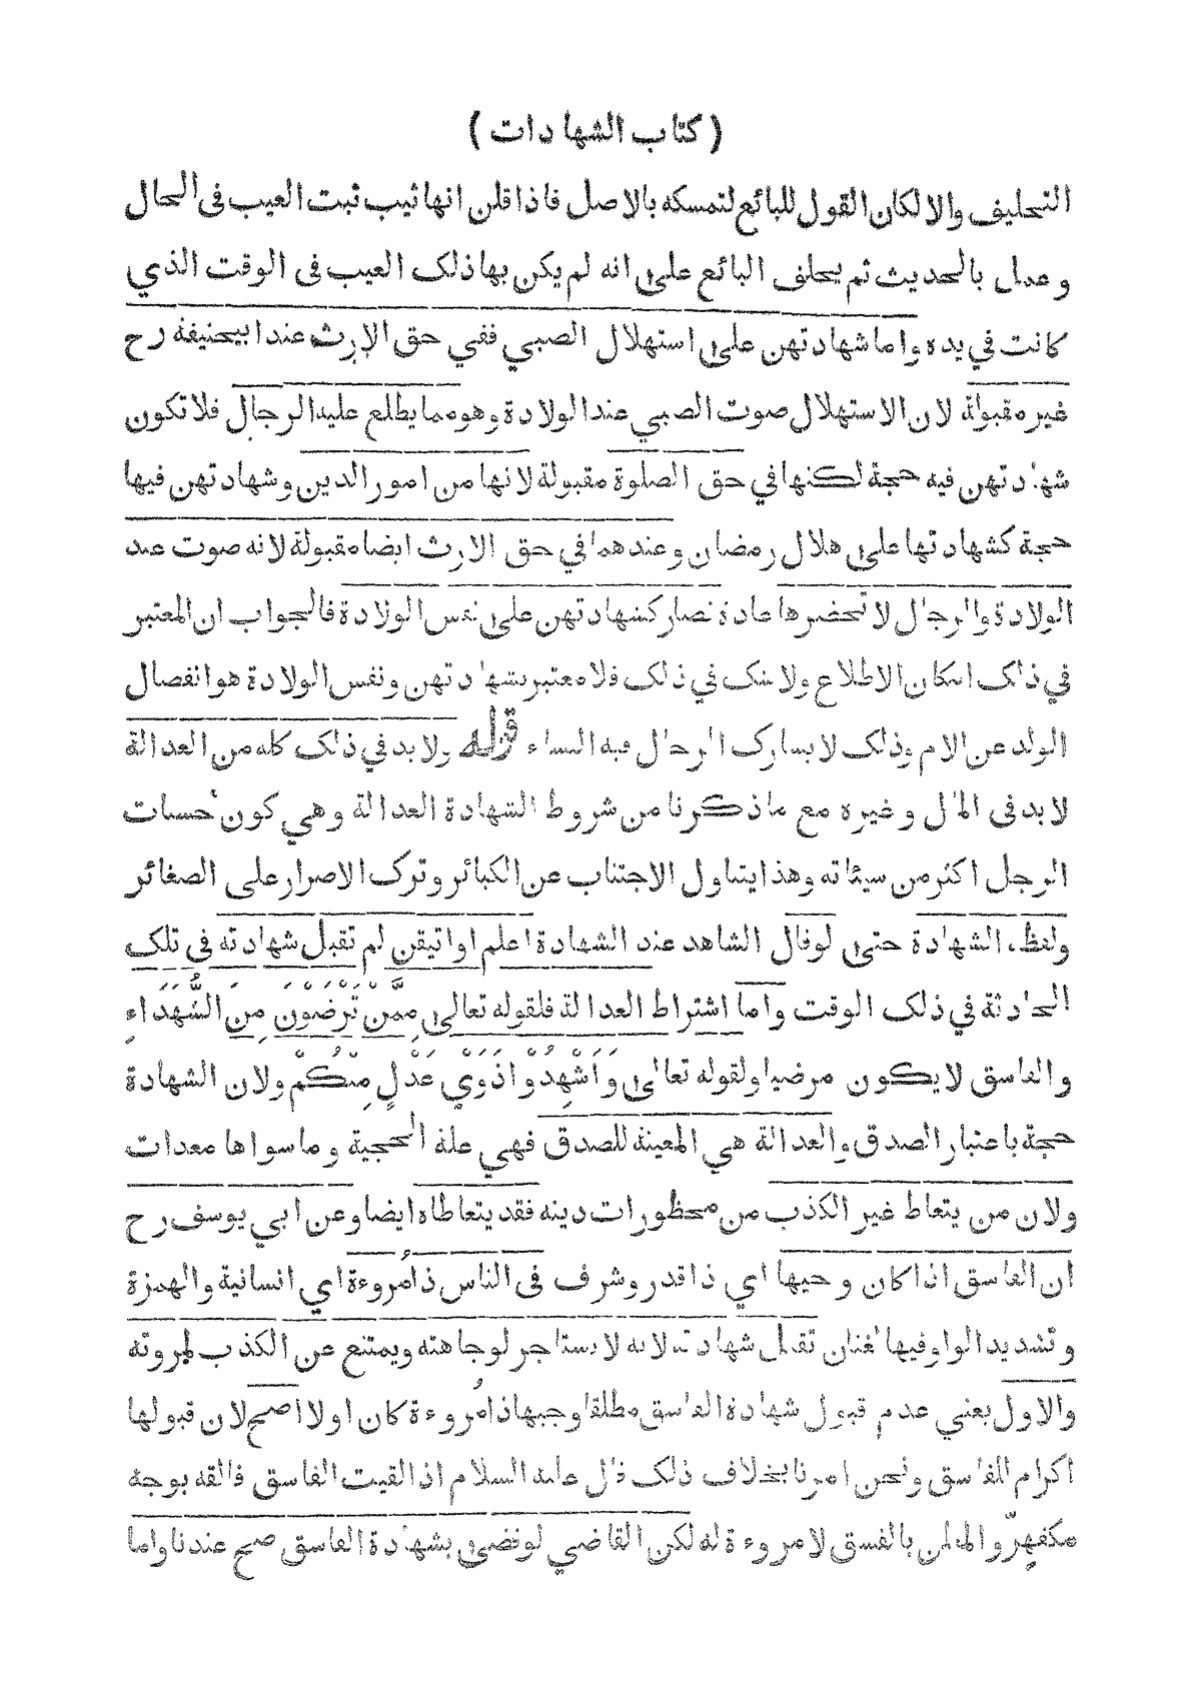 ( كتاب الشهادات )
التحليف والا لكان القول للبائع لتمسكه بالاصل فاذا قلن انها ثيب ثبت العيب فى الحال
وعمل بالحديث ثم يحلف البائع على انه لم يكن بها ذلك العيب فى الوقت الذي
كانت في يده واما شهادتهن على استهلال الصبي ففي حق الارث عند ابيحنيفة رح
غير مقبولة لان الاستهلال صوت الصبي عند الولادة وهو مما يطلع عليه الرجال فلا تكون
شهادتهن فيه حجة لكنها في حق الصلوة مقبولة لانها من امور الدين وشهادتهن فيها
حجة كشهادتها على هلال رمضان وعندهما في حق الارث ايضا مقبولة لانه صوت عند
الولادة والرجال لا تحضرها عادة نصار كشهادتهن على نفس الولادة فالجواب ان المعتبر
في ذلك امكان الاطلاع ولا شك في ذلك فلا معتبر بشهادتهن ونفس الولادة هو انفصال
الولد عن الام وذلك لا يشارك الرجال فيه النساء قوله ولا بد في ذلك كله من العدالة
لا بد فى المال وغيره مع ماذكرنا من شروط الشهادة العدالة وهي كون حسنات
الرجل اكثر من سيئاته وهذا يتناول الاجتناب عن الكبائر وترك الاصرار على الصغائر
ولفظ الشهادة حتى لو قال الشاهد عند الشهادة اعلم او اتيقن لم تقبل شهادته في تلك
الحادثة في ذلك الوقت واما اشتراط العدالة فلقوله تعالى مِمَّنْ تَرْضَوْنَ مِنَ الشُّهَدَاءِ
والفاسق لا يكون مرضيا ولقوله تعالى وَاَشْهِدُوْا ذَوَيْ عَدْلٍ مِنْكُمْ ولان الشهادة
حجة باعتبار الصدق والعدالة هي المعينة للصدق فهي علة الحجية وما سواها معدات
ولان من يتعاط غير الكذب من محظورات دينه فقد يتعاطاه ايضا وعن ابي يوسف رح
ان الفاسق اذا كان وجيها اي ذا قدر وشرف فى الناس ذا مُروءة اي انسانية والهمزة
وتشديد الواو فيها لغتان تقبل شهادته لانه لا يستاجر لوجاهته ويمتنع عن الكذب لمروته
والاول يعني عدم قبول شهادة الفاسق مطلقا وجيها ذا مُروءة كان اولا اصح لان قبولها
اكرام للفاسق ونحن امرنا بخلاف ذلك قال عليه السلام اذا لقيت الفاسق فالقه بوجه
مكفهرّ والمعلن بالفسق لا مروءة له لكن القاضي لو قضى بشهادة الفاسق صح عندنا واما